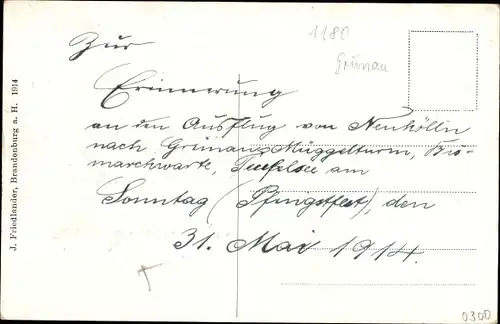 1180
Grünau
Zur
Erinnerung
an den Ausflug von Neukölln
nach Grünau, Müggelturm, Bis-
marckwarte, Teufelsee am
Sonntag (Pfingstfest), den
31. Mai 1914.
J. Friedlander, Brandenburg a. H. 1914
0300